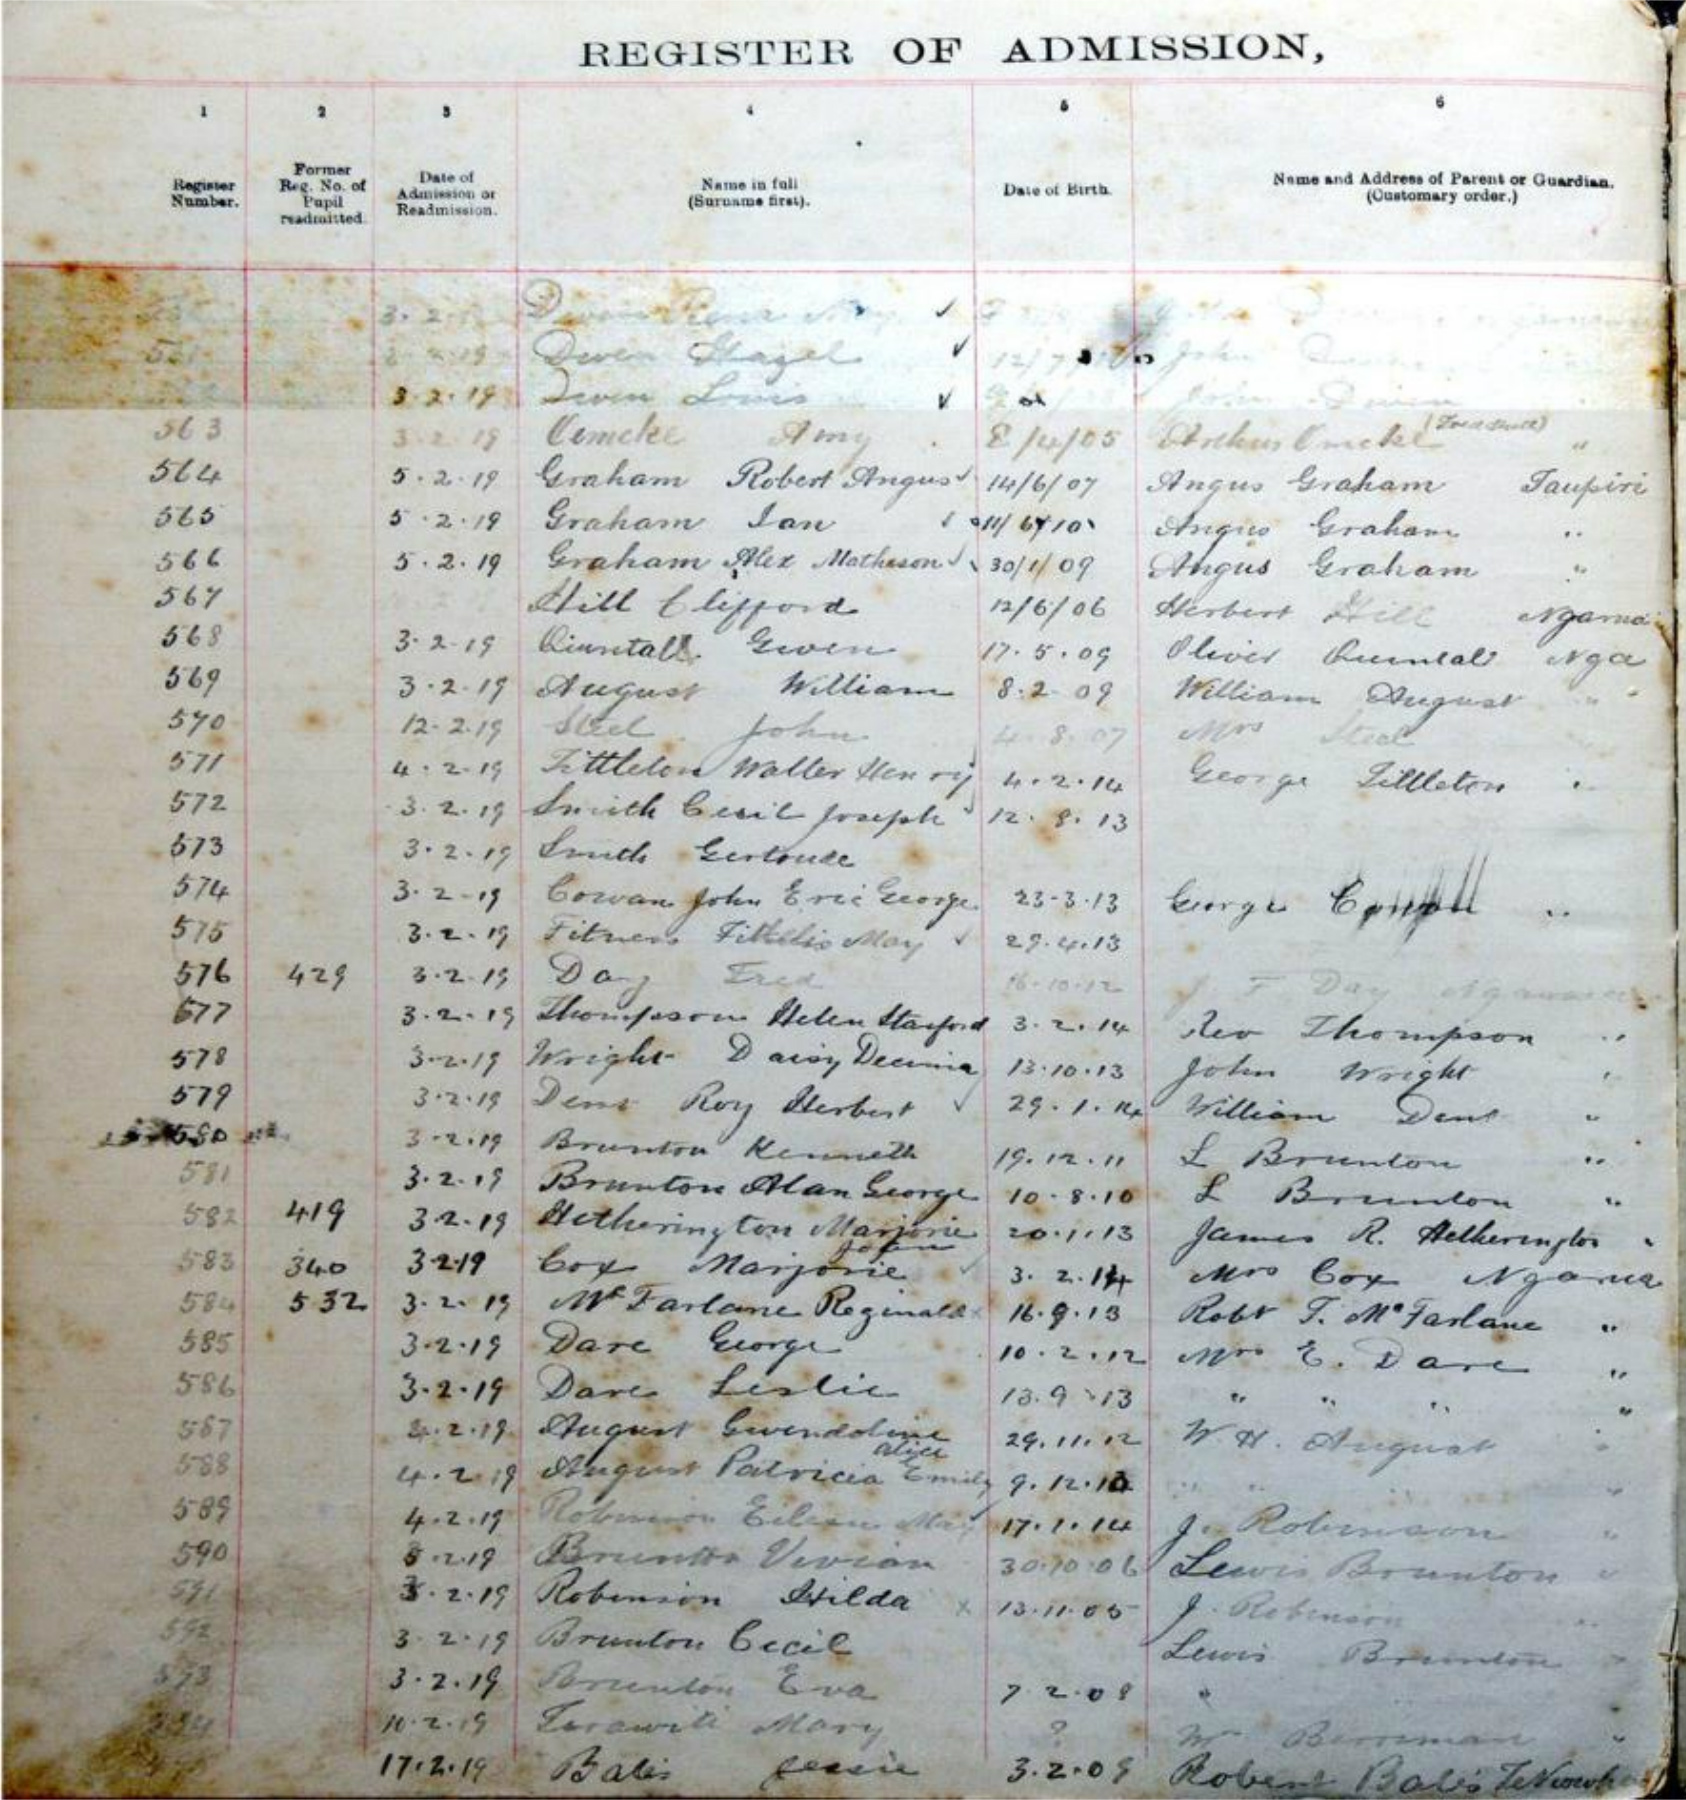 REGISTER OF ADMISSION,
1 2 3 4 5 6
Register Number. Former Reg. No. of Pupil readmitted. Date of Admission or Readmission. Name in full (Surname first). Date of Birth. Name and Address of Parent or Guardian. (Customary order.)
3.2. Owen
Owen Hazel 12/7 John
3.2.19 Owen John
563 3.2.19 Oemcke Amy 8/4/05 Arthur
564 5.2.19 Graham Robert Angus 14/6/07 Angus Graham Taupiri
565 5.2.19 Graham Ian Angus Graham "
566 5.2.19 Graham Alex Matheson 30/1/09 Angus Graham "
567 Hill Clifford 12/6/06 Herbert Hill
568 3.2.19 Gwen 17.5.09 Oliver Nga
569 3.2.19 August William 8.2.09 William August "
570 12.2.19 Steel John 4.8.07 Mrs Steel
571 4.2.19 Tittleton Walter Henry 4.2.14 George Tittleton "
572 3.2.19 Smith Cecil Joseph 12.8.13
573 3.2.19 Smith Gertrude
574 3.2.19 Cowan John Eric George 23-3.13 George "
575 3.2.19 Fitness May 29.4.13
576 429 3.2.19 Day Fred 16.10.12 J F Day
577 3.2.19 Thompson Helen 3.2.14 Rev Thompson "
578 3.2.19 Wright Daisy Decima 13.10.13 John Wright "
579 3.2.19 Dent Roy Herbert 29.1.14 William Dent "
580 3.2.19 Brunton Kenneth 19.12.11 L Brunton "
581 3.2.19 Brunton Alan George 10.8.10 L Brunton "
582 419 3.2.19 Hetherington Marjorie 20.1.13 James R. Hetherington "
583 340 3.2.19 Cox Marjorie 3.2.14 Mrs Cox
584 532 3.2.19 McFarlane Reginald x 16.9.13 Robt T. McFarlane "
585 3.2.19 Dare George 10.2.12 Mrs E. Dare "
586 3.2.19 Dare Leslie 13.9.13 " " " "
587 4.2.19 August Gwendoline 29.11.12 W.H. August "
588 4.2.19 August Patricia Alice Emily 9.12. " " "
589 4.2.19 Robinson Eileen May 17.1.14 J. Robinson "
590 5.2.19 Brunton Vivian 30.10.06 Lewis Brunton "
591 3.2.19 Robinson Hilda x 13.11.05 J. Robinson "
592 3.2.19 Brunton Cecil Lewis Brunton "
593 3.2.19 Brunton Eva 7.2.08 "
10.2.19 Mary ? "
17.2.19 Bates Jessie 3.2.09 Robert Bates